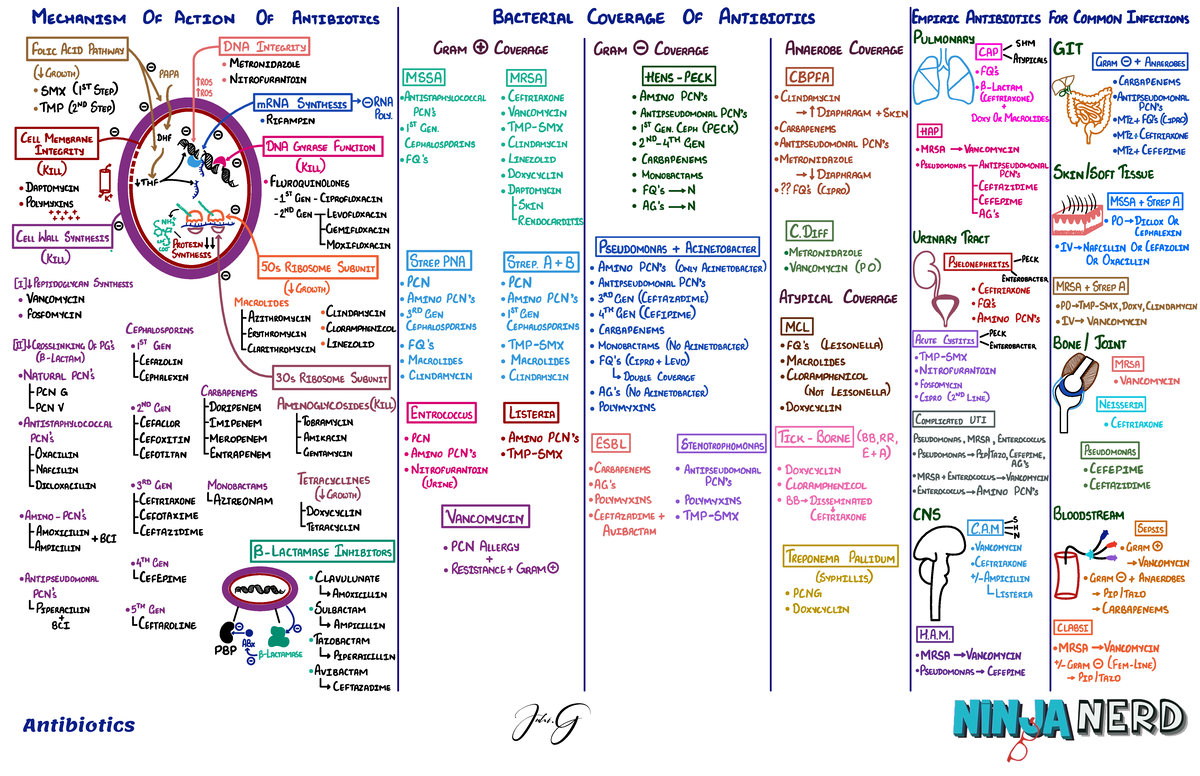 Mechanism Of Action Of Antibiotics
Folic Acid Pathway
(↓Growth)
• SMX (1st Step)
• TMP (2nd Step)
PAPA
DNA Integrity
• Metronidazole
• Nitrofurantoin
↑ROS
↑ROS
mRNA Synthesis → ⊖ RNA Poly.
• Rifampin
DNA Gyrase Function
(Kill)
• Fluroquinolones
-1st Gen - Ciprofloxacin
-2nd Gen
Levofloxacin
Gemifloxacin
Moxifloxacin
Cell Membrane Integrity
(Kill)
• Daptomycin
• Polymyxins
+++++
++++
K+
DHF
↓THF
NH3
COO
Protein Synthesis ↓↓
Cell Wall Synthesis
(Kill)
[I]↓Peptidoglycan Synthesis
• Vancomycin
• Fosfomycin
[II]↓Crosslinking Of PG's
(β-Lactam)
• Natural PCN's
PCN G
PCN V
• Antistaphylococcal PCN's
Oxacillin
Nafcillin
Dicloxacillin
• Amino-PCN's
Amoxicillin
Ampicillin
+ BCI
• Antipseudomonal PCN's
Piperacillin
+
BCI
Cephalosporins
• 1st Gen
Cefazolin
Cephalexin
• 2nd Gen
Cefaclor
Cefoxitin
Cefotitan
• 3rd Gen
Ceftriaxone
Cefotaxime
Ceftazidime
• 4th Gen
Cefepime
• 5th Gen
Ceftaroline
Carbapenems
Doripenem
Imipenem
Meropenem
Entrapenem
Monobactams
Aztreonam
50s Ribosome Subunit
(↓Growth)
Macrolides
Azithromycin
Erythromycin
Clarithromycin
• Clindamycin
• Cloramphenicol
• Linezolid
30s Ribosome Subunit
Aminoglycosides (Kill)
Tobramycin
Amikacin
Gentamycin
Tetracyclins
(↓Growth)
Doxycyclin
Tetracyclin
β-Lactamase Inhibitors
PBP
ABx
β-Lactamase
• Clavulunate
→ Amoxicillin
• Sulbactam
→ Ampicillin
• Tazobactam
→ Piperaicillin
• Avibactam
→ Ceftazadime
Bacterial Coverage Of Antibiotics
Gram ⊕ Coverage
MSSA
• Antistaphylococcal PCN's
• 1st Gen. Cephalosporins
• FQ's
MRSA
• Ceftriaxone
• Vancomycin
• TMP-SMX
• Clindamycin
• Linezolid
• Doxycyclin
• Daptomycin
Skin
Rendocarditis
Strep. PNA
• PCN
• Amino PCN's
• 3rd Gen Cephalosporins
• FQ's
• Macrolides
• Clindamycin
Strep. A + B
• PCN
• Amino PCN's
• 1st Gen Cephalosporins
• TMP-SMX
• Macrolides
• Clindamycin
Entrococcus
• PCN
• Amino PCN's
• Nitrofurantoin
(Urine)
Listeria
• Amino PCN's
• TMP-SMX
Vancomycin
• PCN Allergy
+
• Resistance + Gram ⊕
Gram ⊖ Coverage
Hens-Peck
• Amino PCN's
• Antipseudomonal PCN's
• 1st Gen. Ceph (PECK)
• 2nd-4th Gen
• Carbapenems
• Monobactams
• FQ's → N
• AG's → N
Pseudomonas + Acinetobacter
• Amino PCN's (Only Acinetobacter)
• Antipseudomonal PCN's
• 3rd Gen (Ceftazadime)
• 4th Gen (Cefipime)
• Carbapenems
• Monobactams (No Acinetobacter)
• FQ's (Cipro + Levo)
↳ Double Coverage
• AG's (No Acinetobacter)
• Polymyxins
ESBL
• Carbapenems
• AG's
• Polymyxins
• Ceftazadime + Avibactam
Stenotrophomonas
• Antipseudomonal PCN's
• Polymyxins
• TMP-SMX
Anaerobe Coverage
CBPFA
• Clindamycin
→ ↑Diaphragm + Skin
• Carbapenems
• Antipseudomonal PCN's
• Metronidazole
→ ↓Diaphragm
• ?? FQ's (Cipro)
C.Diff
• Metronidazole
• Vancomycin (PO)
Atypical Coverage
MCL
• FQ's (Leisonella)
• Macrolides
• Cloramphenicol
(Not Leisonella)
• Doxycyclin
Tick-Borne (BB,RR, E+A)
• Doxycyclin
• Cloramphenicol
• BB→Disseminated
↓
Ceftriaxone
Treponema Pallidum
(Syphillis)
• PCNG
• Doxycyclin
Empiric Antibiotics For Common Infections
Pulmonary
CAP
SHM
Atypicals
• FQ's
• β-Lactam
(Ceftriaxone)
+
Doxy Or Macrolides
HAP
• MRSA → Vancomycin
• Pseudomonas
Antipseudomonal PCN's
Ceftazidime
Cefepime
AG's
Urinary Tract
Pyelonephritis
Peck
Enterobacter
• Ceftriaxone
• FQ's
• Amino PCN's
Acute Cystitis
Peck
Enterobacter
• TMP-SMX
• Nitrofurantoin
• Fosfomycin
• Cipro (2nd Line)
Complicated UTI
Pseudomonas, MRSA, Enterococcus
• Pseudomonas→Pip/Tazo, Cefepime, AG's
• MRSA + Enterococcus→Vancomycin
• Enterococcus→Amino PCN's
CNS
C.A.M
S
H
N
• Vancomycin
• Ceftriaxone
+/-Ampicillin
Listeria
H.A.M.
• MRSA → Vancomycin
• Pseudomonas→ Cefepime
GIT
Gram ⊖ + Anaerobes
• Carbapenems
• Antipseudomonal PCN's
• MTZ+FQ's (Cipro)
• MTZ+Ceftriaxone
• MTZ+Cefepime
Skin/Soft Tissue
MSSA + Strep A
• PO→Diclox Or Cephalexin
• IV→Nafcillin Or Cefazolin Or Oxacillin
MRSA + Strep A
• PO→TMP-SMX, Doxy, Clindamycin
• IV→ Vancomycin
Bone/ Joint
MRSA
• Vancomycin
Neisseria
• Ceftriaxone
Pseudomonas
• Cefepime
• Ceftazidime
Bloodstream
Sepsis
• Gram ⊕
→Vancomycin
• Gram ⊖ + Anaerobes
→ Pip/Tazo
→ Carbapenems
CLABSI
• MRSA →Vancomycin
+/-Gram ⊖ (Fem-Line)
→ Pip/Tazo
Antibiotics
NINJA NERD